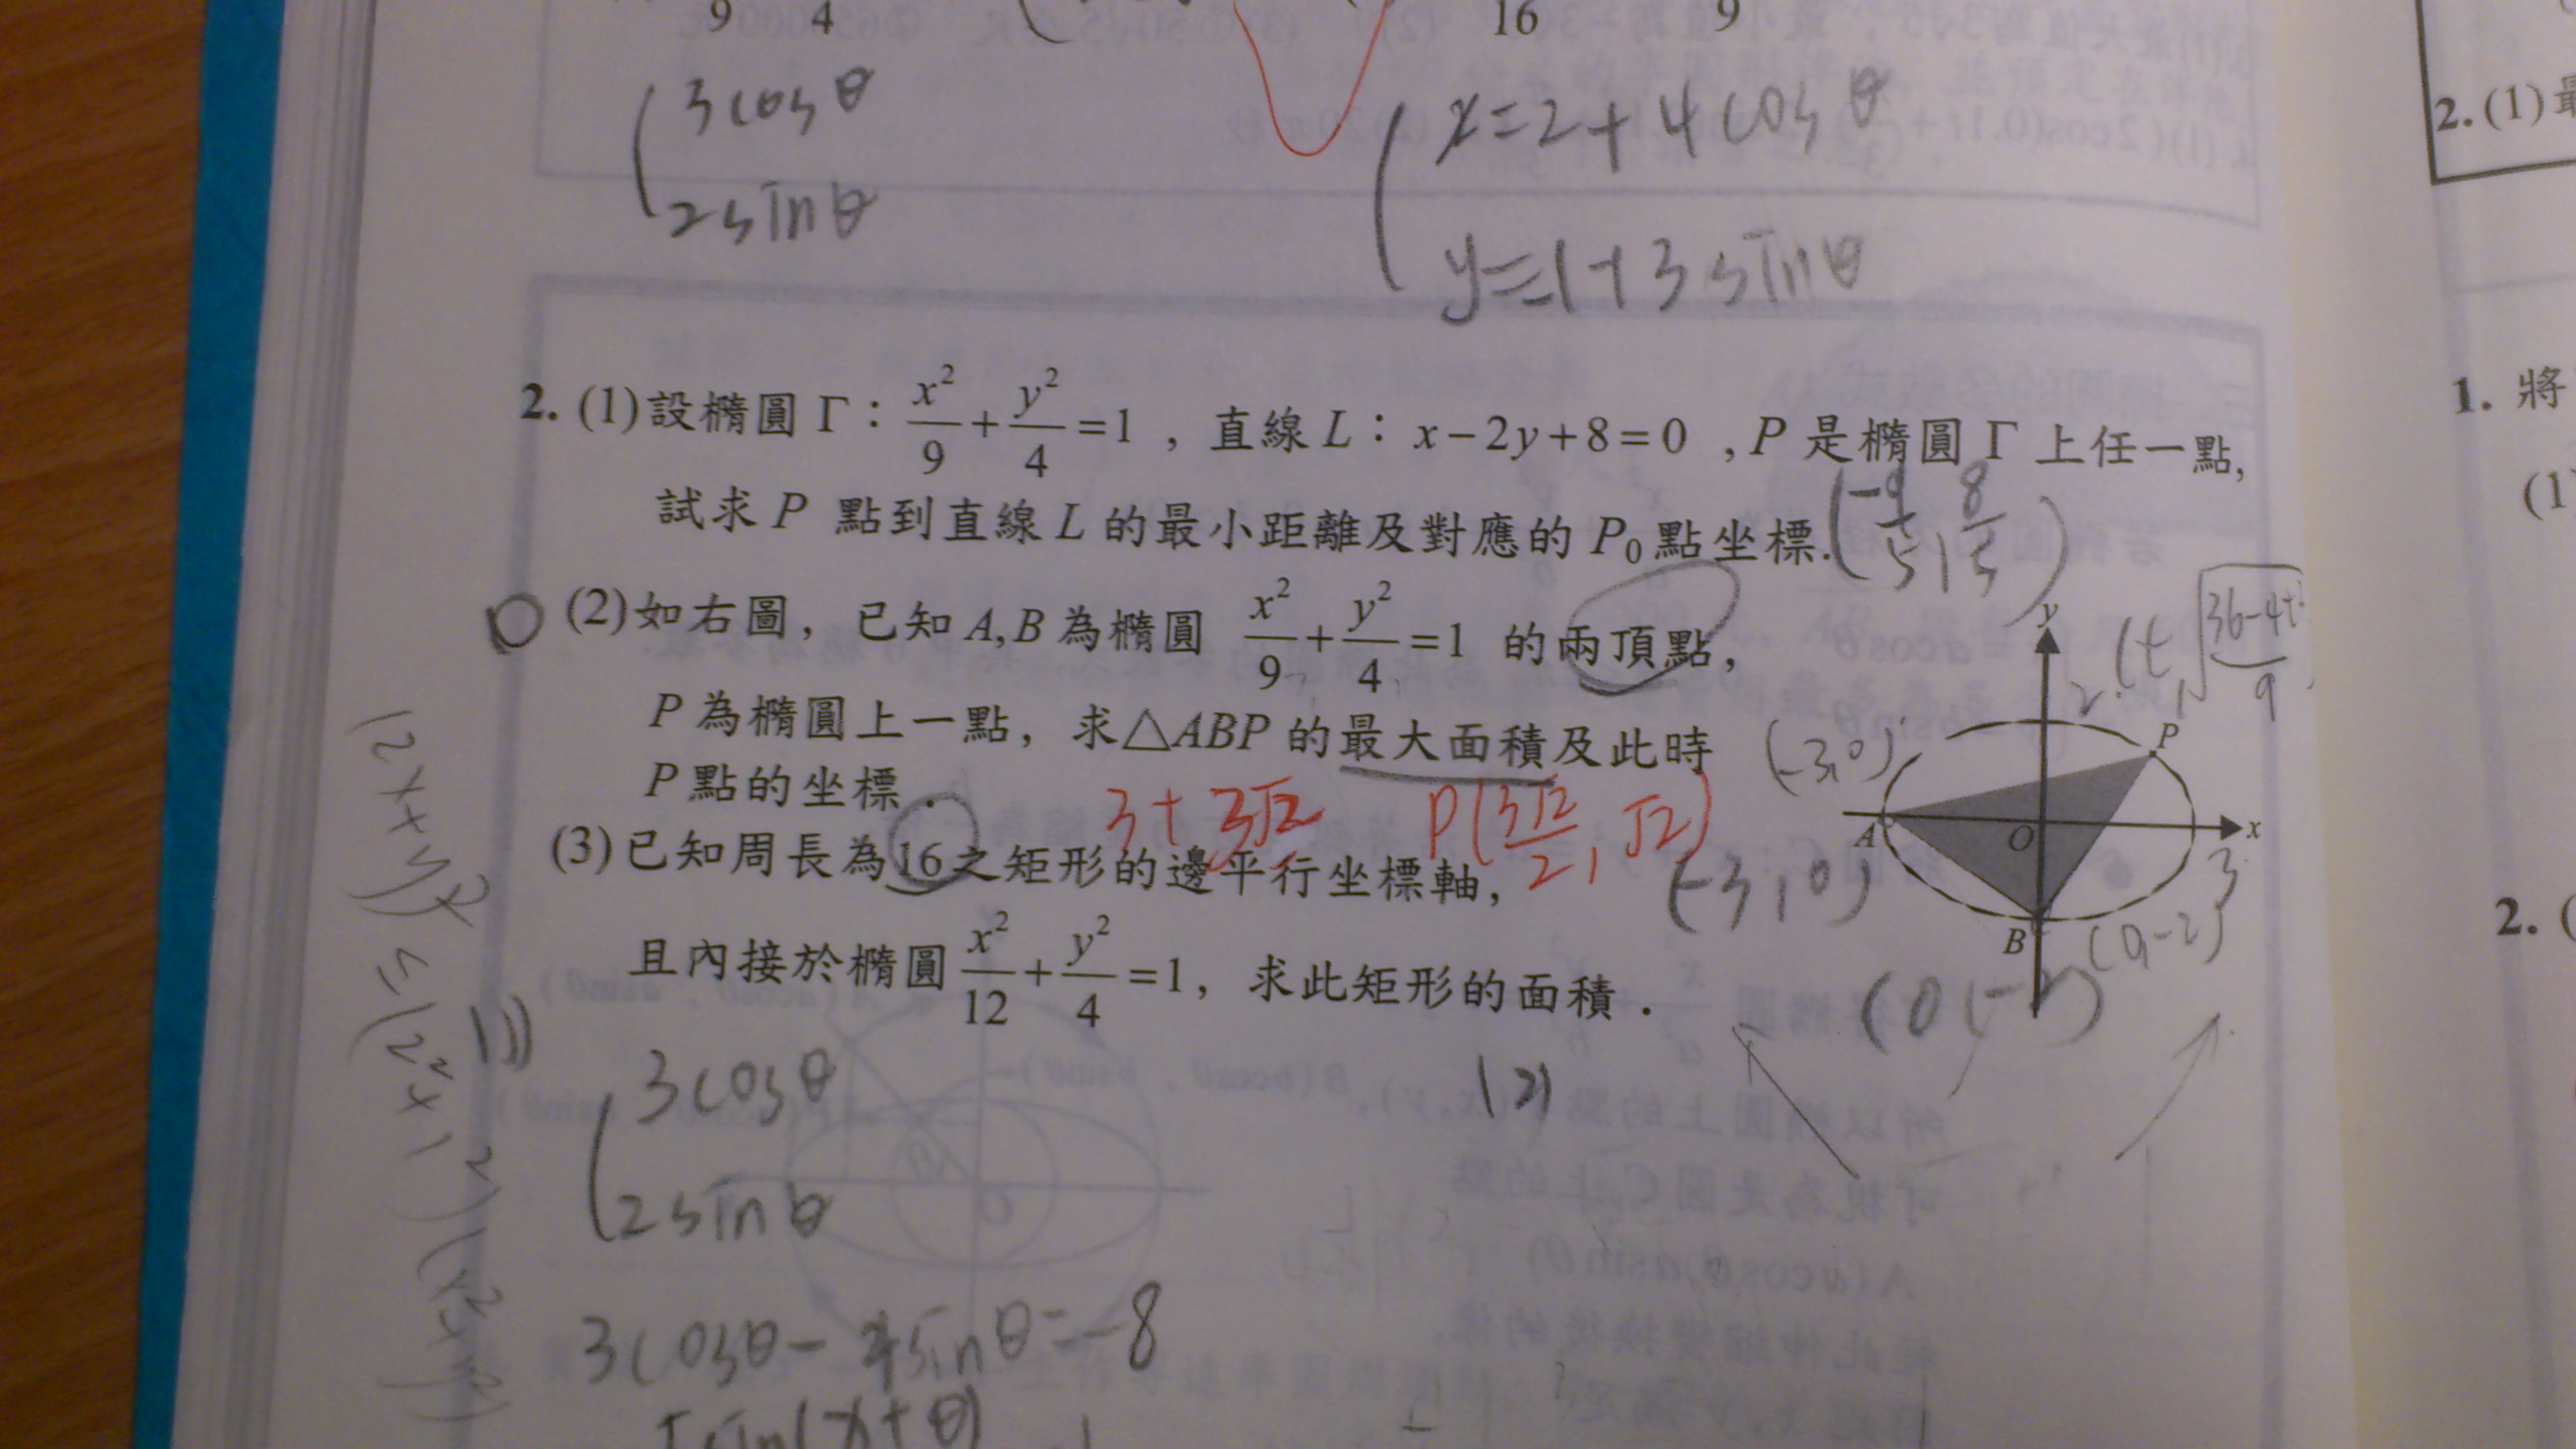 9 4
16 9
3cosθ
2sinθ
x=2+4cosθ
y=1+3sinθ
2. (1)設橢圓 Γ：x²/9+y²/4=1 ，直線 L：x−2y+8=0 ，P 是橢圓 Γ 上任一點,
試求 P 點到直線 L 的最小距離及對應的 P₀ 點坐標.
(-9/5, 8/5)
(2)如右圖，已知 A,B 為橢圓 x²/9+y²/4=1 的兩頂點，
P 為橢圓上一點，求△ABP 的最大面積及此時
P 點的坐標．
3+3√2 P(3√2/2, √2)
(3)已知周長為16之矩形的邊平行坐標軸，
且內接於橢圓 x²/12+y²/4=1，求此矩形的面積．
y
2
P
(-3,0)
A
O
x
3
(-3,0)
B
(0,-2)
(0,-2)
(1)
3cosθ
2sinθ
(2)
3cosθ-4sinθ=-8
2. (1)最
1. 將
(1
2. (